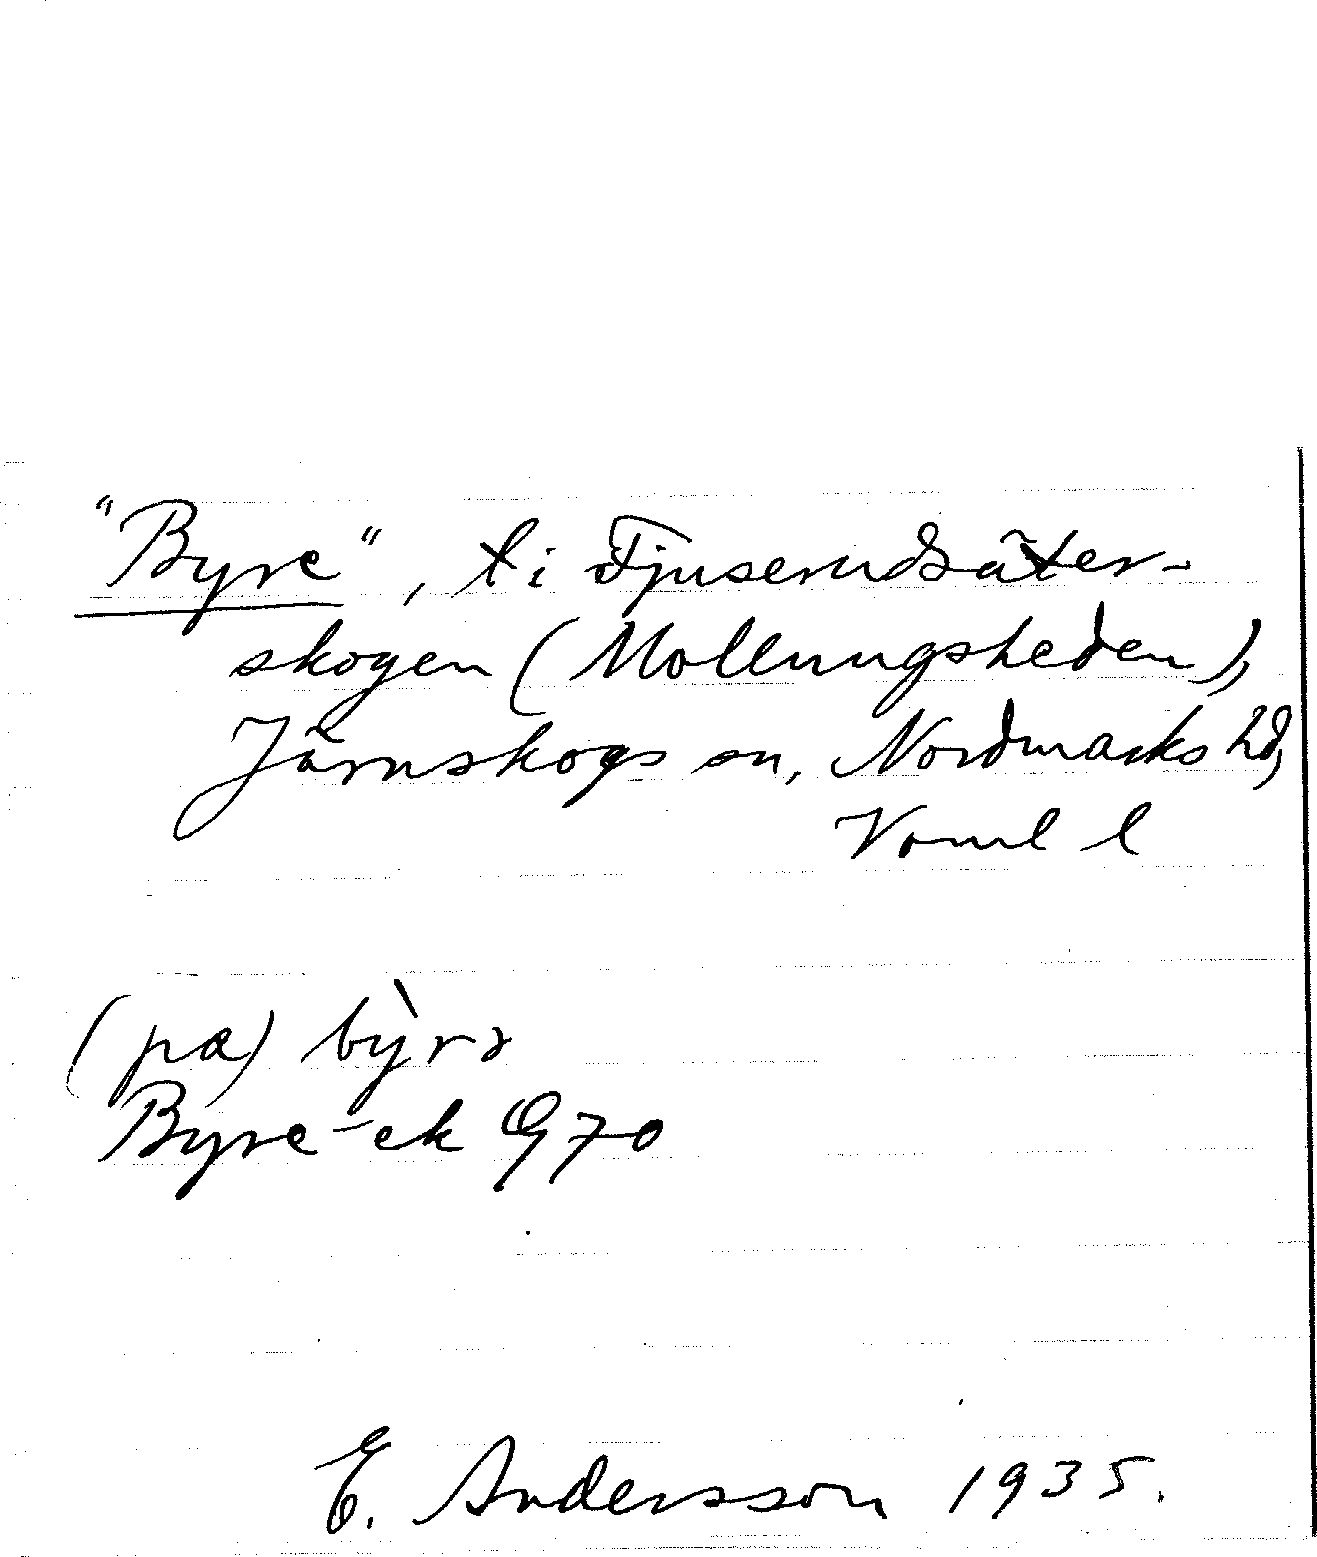 "Byre", t i Fjuserudsäter-
skogen (Mollungsheden),
Järnskogs sn, Nordmarks hd,
Värml l
(pα) bỳrə
Byre-ek G70
E. Andersson 1935.